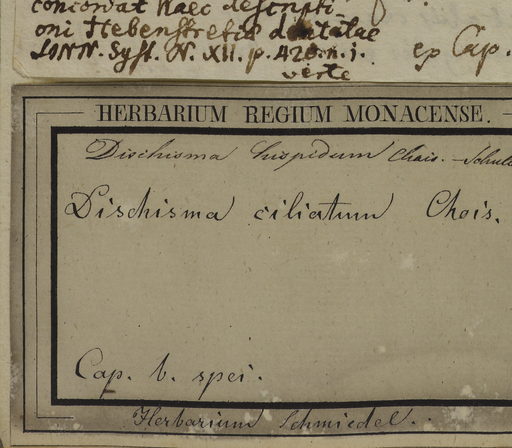 concordat haec descripti
oni Hebenstretiæ dentatae
LINN. Syst. N. XII. p. 420. n. 1.
verte
ex Cap.
HERBARIUM REGIUM MONACENSE.
Dischisma hispidum Chois. –
Dischisma ciliatum Chois.
Cap. b. spei.
Herbarium Schmiedel.